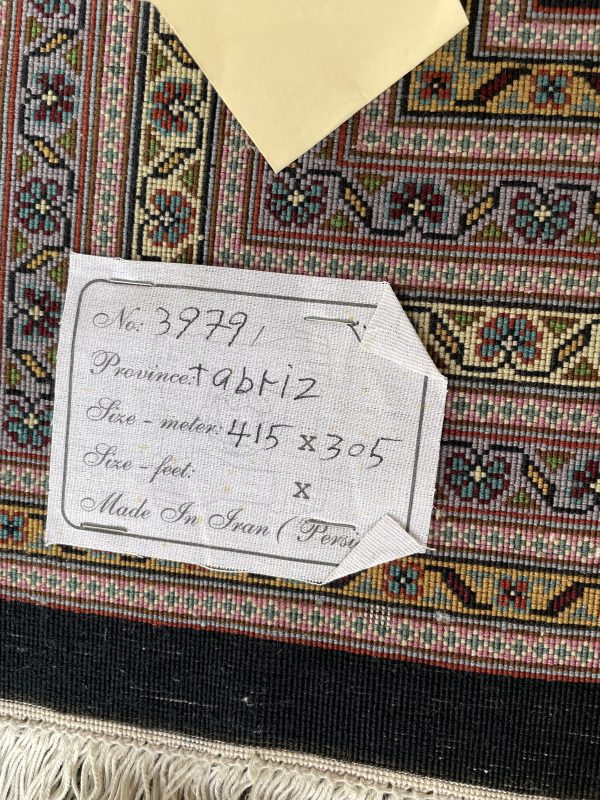 No: 3979/
Province: tabriz
Size - meter: 415 x 305
Size - feet: x
Made In Iran (Persi